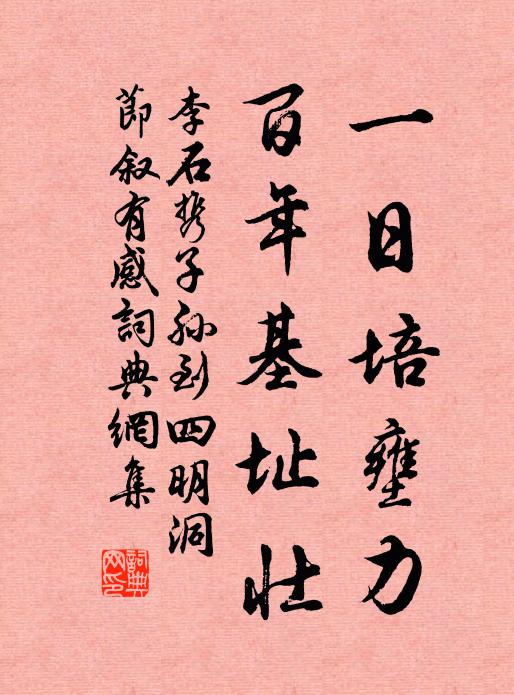 一日培壅力
百年基址壯
李石携子孫到四明洞
節叙有感詞典網集
詞典網印